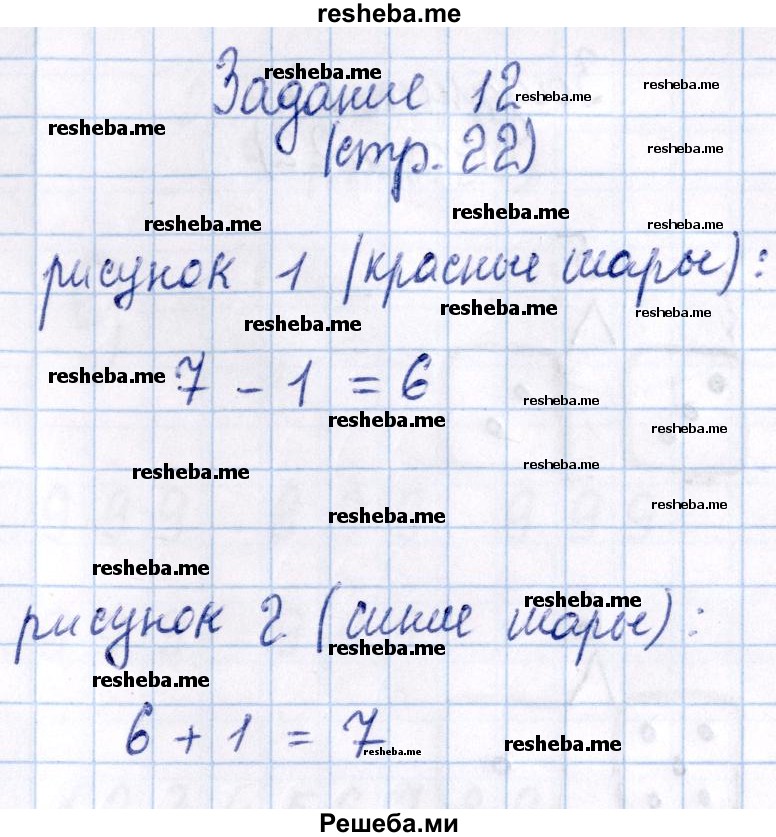 resheba.me
resheba.me
Задание 12
resheba.me
resheba.me
resheba.me
(стр. 22)
resheba.me
resheba.me
resheba.me
resheba.me
рисунок 1 (красные шары):
resheba.me
resheba.me
resheba.me
resheba.me
7 - 1 = 6
resheba.me
resheba.me
resheba.me
resheba.me
resheba.me
resheba.me
resheba.me
resheba.me
resheba.me
рисунок 2 (синие шары):
resheba.me
resheba.me
6 + 1 = 7
resheba.me
resheba.me
Решеба.ми